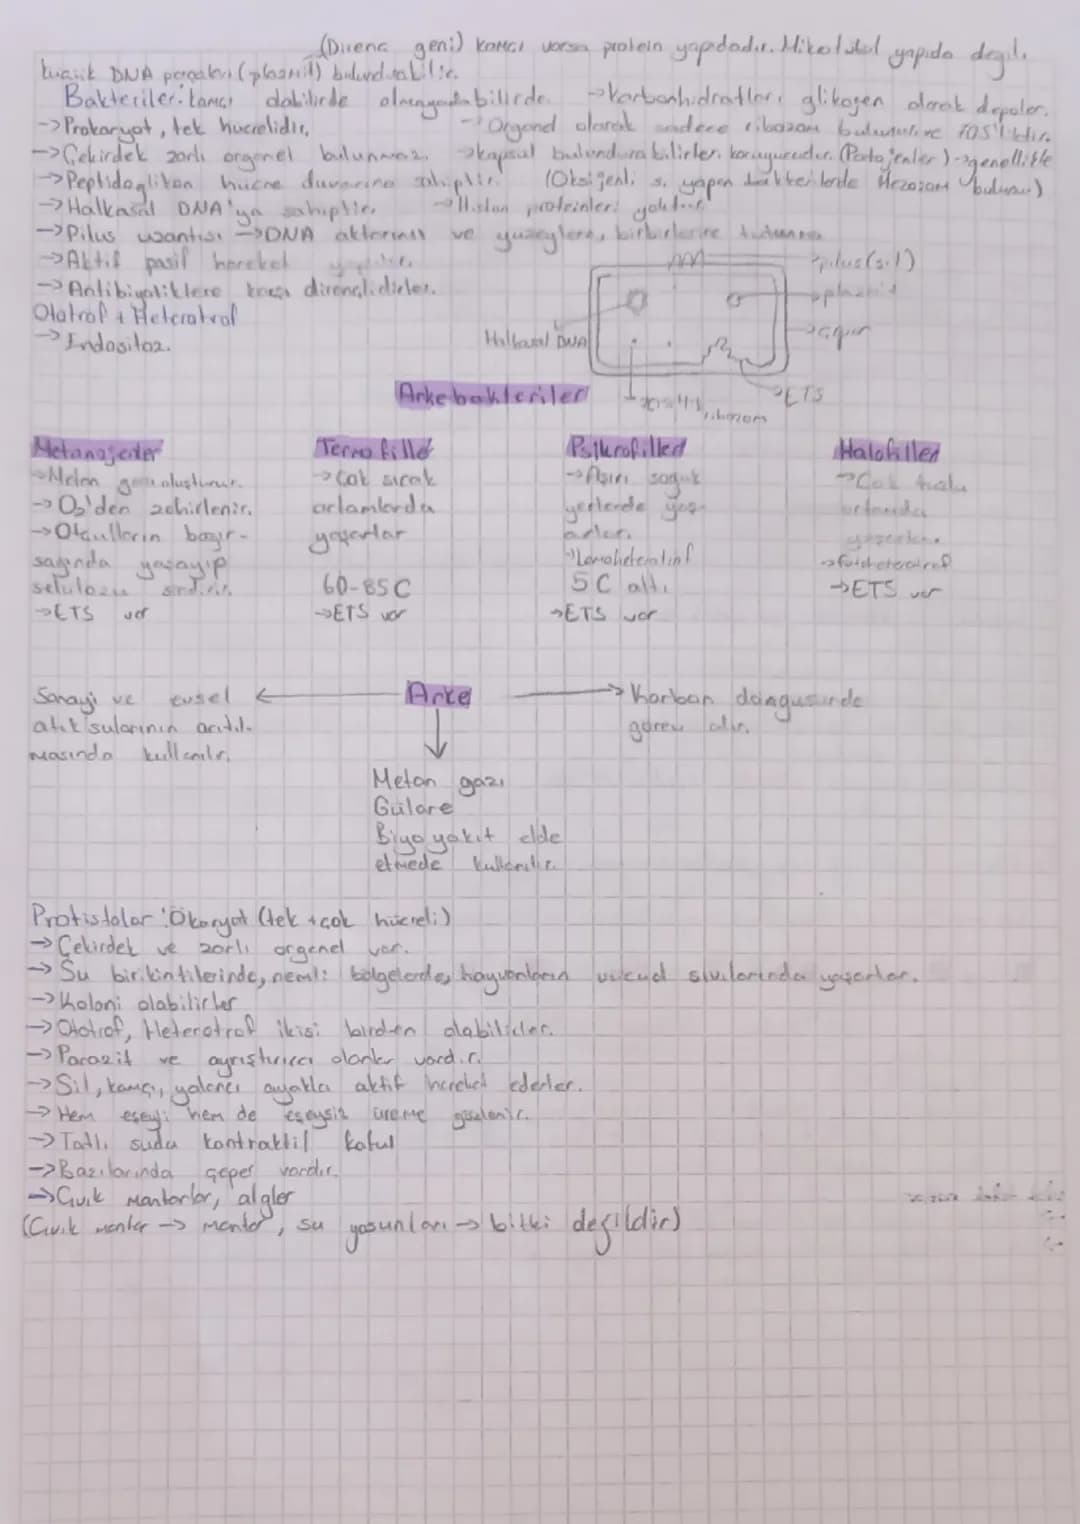 (Direnc geni) kamçı varsa protein yapıdadır. Mikotübül yapıda değil.
küçük DNA parçaları (plazmit) bulundurabilir.
Bakteriler: kamçı olabilirde olmayadabilirde. →Karbonhidratları glikojen olarak depolar.
→Prokaryot, tek hücrelidir. →Organel olarak sadece ribozom bulundurur
→Çekirdek zarlı organel bulunmaz. →kapsül bulundurabilirler. koruyucudur. (Patojenler)→genellikle
→Peptidoglikan hücre duvarına sahiptir. (Oksijenli s. yapan bakterilerde Mezozom bulunur)
→Halkasal DNA'ya sahiptir. →Histon proteinleri yoktur.
→Pilus uzantısı →DNA aktarımı ve yüzeylere, birbirlerine tutunma
→Aktif pasif hareket
→Antibiyotiklere karşı dirençlidirler.
Ototrof + Heterotrof
→Endositoz.
pilus(sil)
plazmid
Halkasal DNA
ETS
ribozom
Arkebakteriler
Metanojenler
→Metan gazı oluşturur.
→O₂'den zehirlenir.
→Otçulların bağır-
sağında yaşayıp
selülozu sindirir.
→ETS var
Termofiller
→Çok sıcak
ortamlarda
yaşarlar
60-85C
→ETS var
Psikrofilled
→Aşırı soğuk
yerlerde yaş-
arlar.
5C altı
→ETS var
Halofilled
→Çok tuzlu
ortamda
→ETS var
Arke
Sanayi ve evsel
atık sularının arıtıl-
masında kullanılır.
Karbon döngüsünde
görev alır.
Metan gazı
Gülare
Biyoyakıt elde
etmede kullanılır.
Protistalar: Ökaryot (tek + çok hücreli)
→Çekirdek ve zarlı organel var.
→Su birikintilerinde, nemli bölgelerde, hayvanların vücud sıvılarında yaşarlar.
→Koloni olabilirler
→Ototrof, Heterotrof ikisi birden olabilirler.
→Parazit ve ayrıştırıcı olanlar vardır.
→Sil, kamçı, yalancı ayakla aktif hareket ederler.
→Hem eşeyli hem de eşeysiz üreme gözlenir.
→Tatlı suda kontraktil koful
→Bazılarında çeper vardır.
→Cıvık mantarlar, algler
(Cıvık mantar → mantar, su yosunları → bitki değildir)